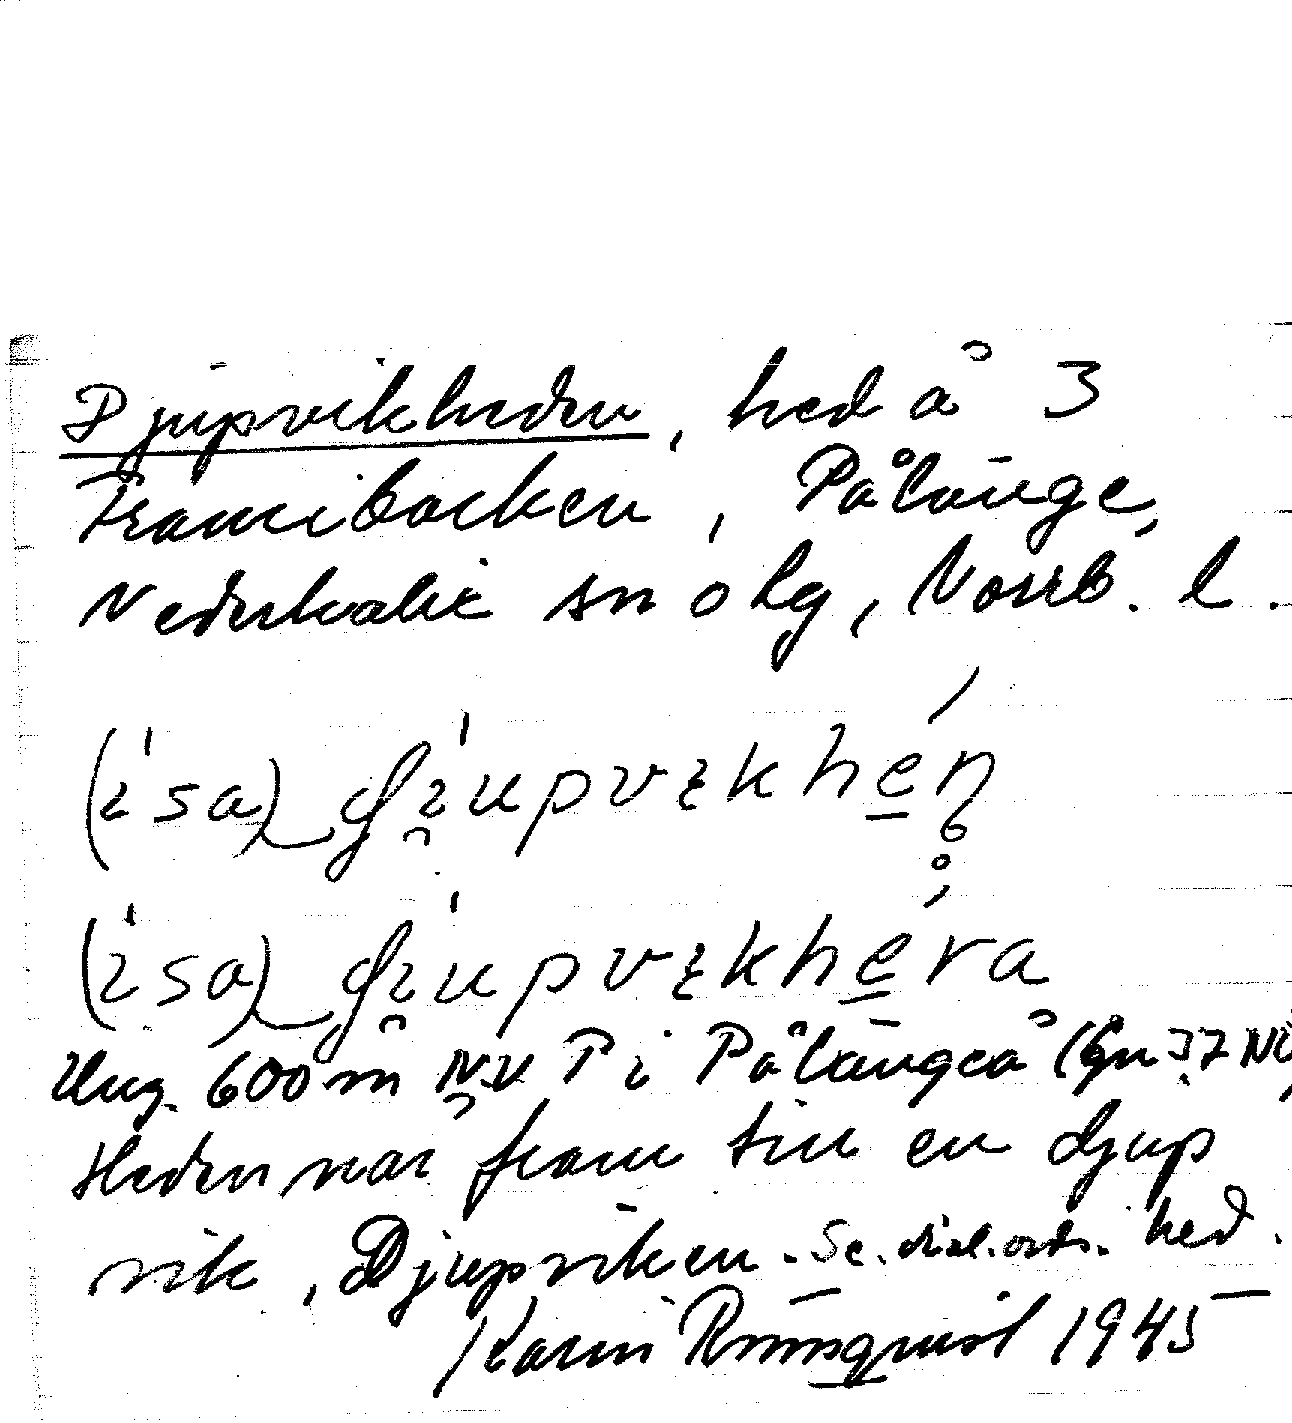 Djupvikheden, hed å 3
Framibacken, Pålänge,
Nederkalix sn o hg, Norrb. l.
Ung. 600 m NV P i Pålängeå (Gn 37 NV)
Heden når fram till en djup
vik, Djupviken. Se dial.ordr. hed.
Karin Rönnqvist 1945